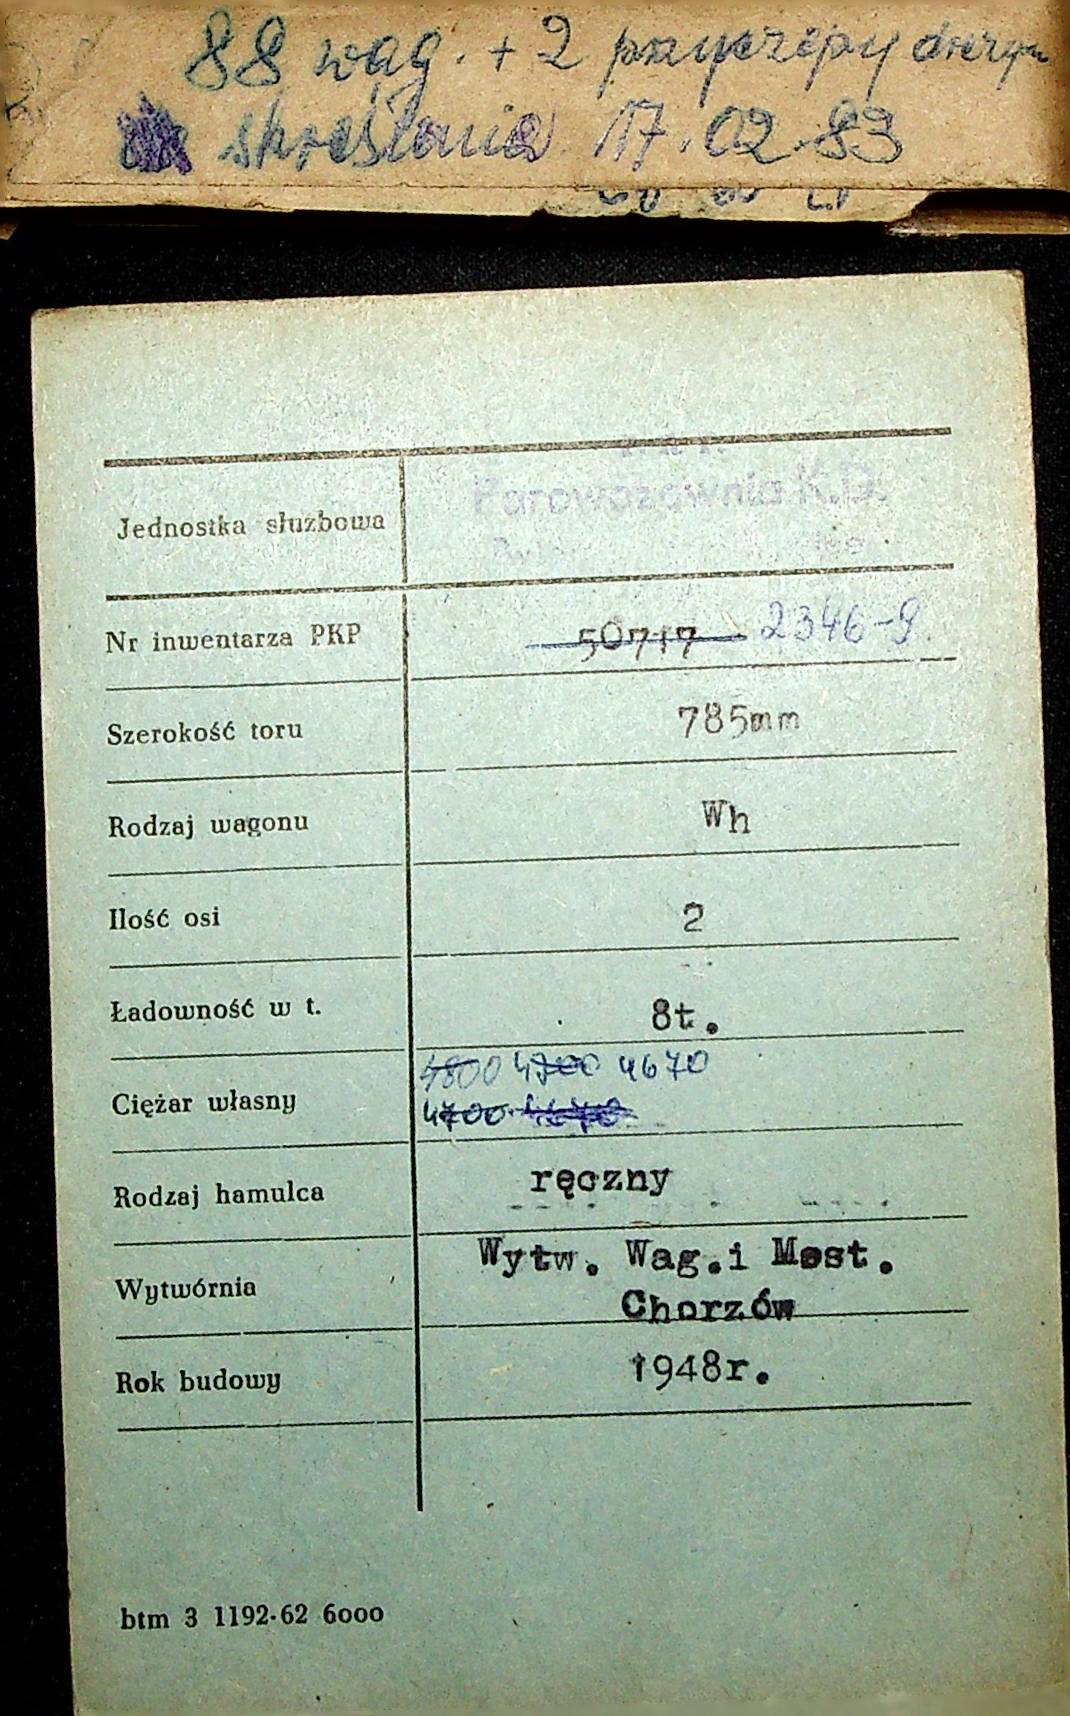 88 wag. + 2 przyczepy drezyn
skreślenia 17.02.83
Jednostka służbowa
Parowozownia K.D.
Nr inwentarza PKP 50717 2346-9
Szerokość toru 785mm
Rodzaj wagonu Wh
Ilość osi 2
Ładowność w t. 8t.
4800 4700 4670
Ciężar własny 4700 4670
Rodzaj hamulca ręczny
Wytw. Wag.i Most.
Wytwórnia Chorzów
Rok budowy 1948r.
btm 3 1192-62 6000